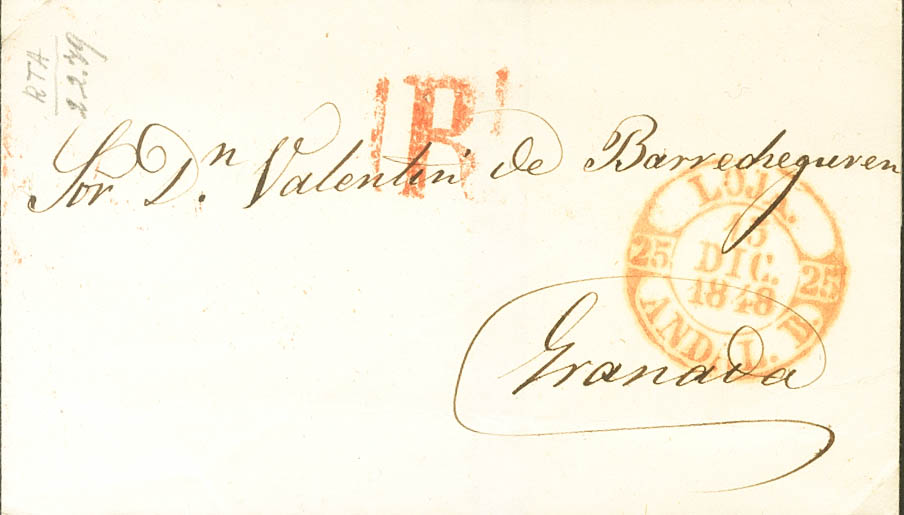 R
Sor Dn. Valentin de Barrecheguren
LOJA.
13
DIC.
1848
25 25
ANDAL. B.
Granada